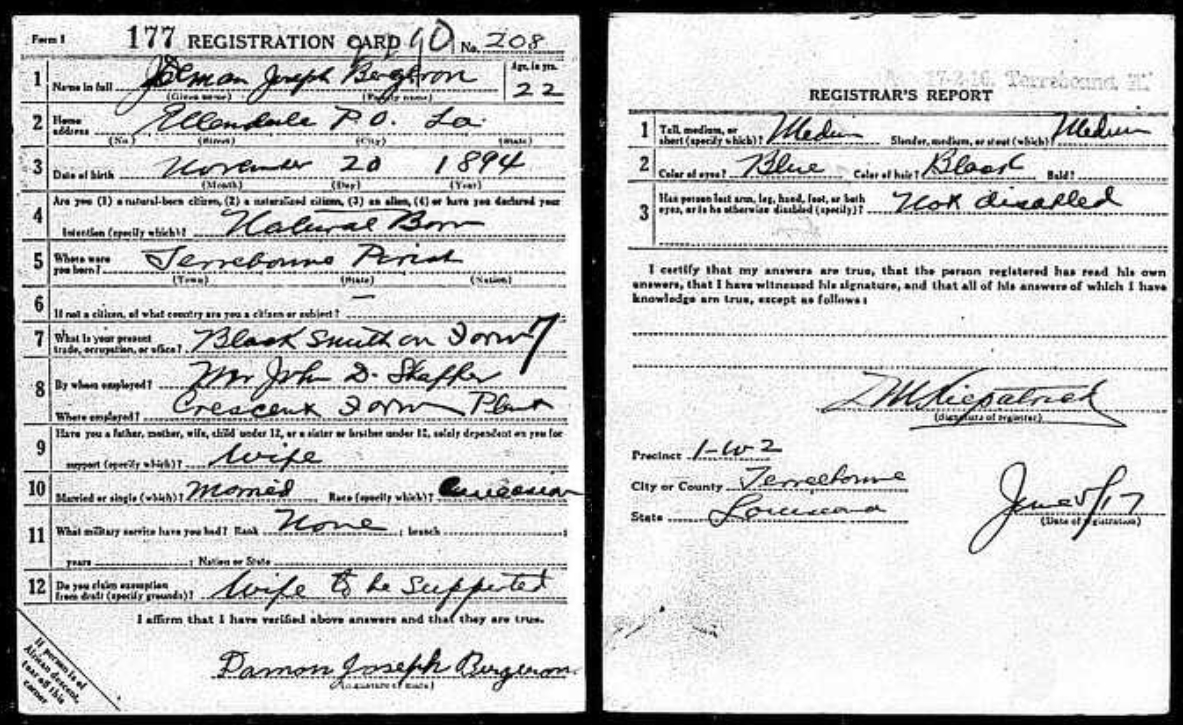 Form 1 177 REGISTRATION CARD No. 208
1 Name in full Joseph Bergeron Age, in yrs. 22
(Given name) (Family name)
2 Home address Ellendale P.O. La.
(No.) (Street) (City) (State)
3 Date of birth November 20 1894
(Month) (Day) (Year)
4 Are you (1) a natural-born citizen, (2) a naturalized citizen, (3) an alien, (4) or have you declared your
intention (specify which)? Natural Born
5 Where were you born? Terrebonne Parish
(Town) (State) (Nation)
6 If not a citizen, of what country are you a citizen or subject? —
7 What is your present trade, occupation, or office? Black Smith on Farm 7
8 By whom employed? Mr John D. Shaffer
Where employed? Crescent Farm Plant
9 Have you a father, mother, wife, child under 12, or a sister or brother under 12, solely dependent on you for
support (specify which)? Wife
10 Married or single (which)? Married Race (specify which)? Caucasian
11 What military service have you had? Rank None ; branch ;
years ; Nation or State
12 Do you claim exemption from draft (specify grounds)? Wife to be supported
I affirm that I have verified above answers and that they are true.
Damon Joseph Bergeron
(Signature or mark)
If person is of
African descent,
tear off this
corner
17-2-16. Terrebound,
REGISTRAR'S REPORT
1 Tall, medium, or short (specify which)? Medium Slender, medium, or stout (which)? Medium
2 Color of eyes? Blue Color of hair? Black Bald?
3 Has person lost arm, leg, hand, foot, or both eyes, or is he otherwise disabled (specify)? Not disabled
I certify that my answers are true, that the person registered has read his own
answers, that I have witnessed his signature, and that all of his answers of which I have
knowledge are true, except as follows:
Kirpatrick
(Signature of registrar)
Precinct 1-W 2
City or County Terrebonne
State Louisiana
June 5/17
(Date of registration)